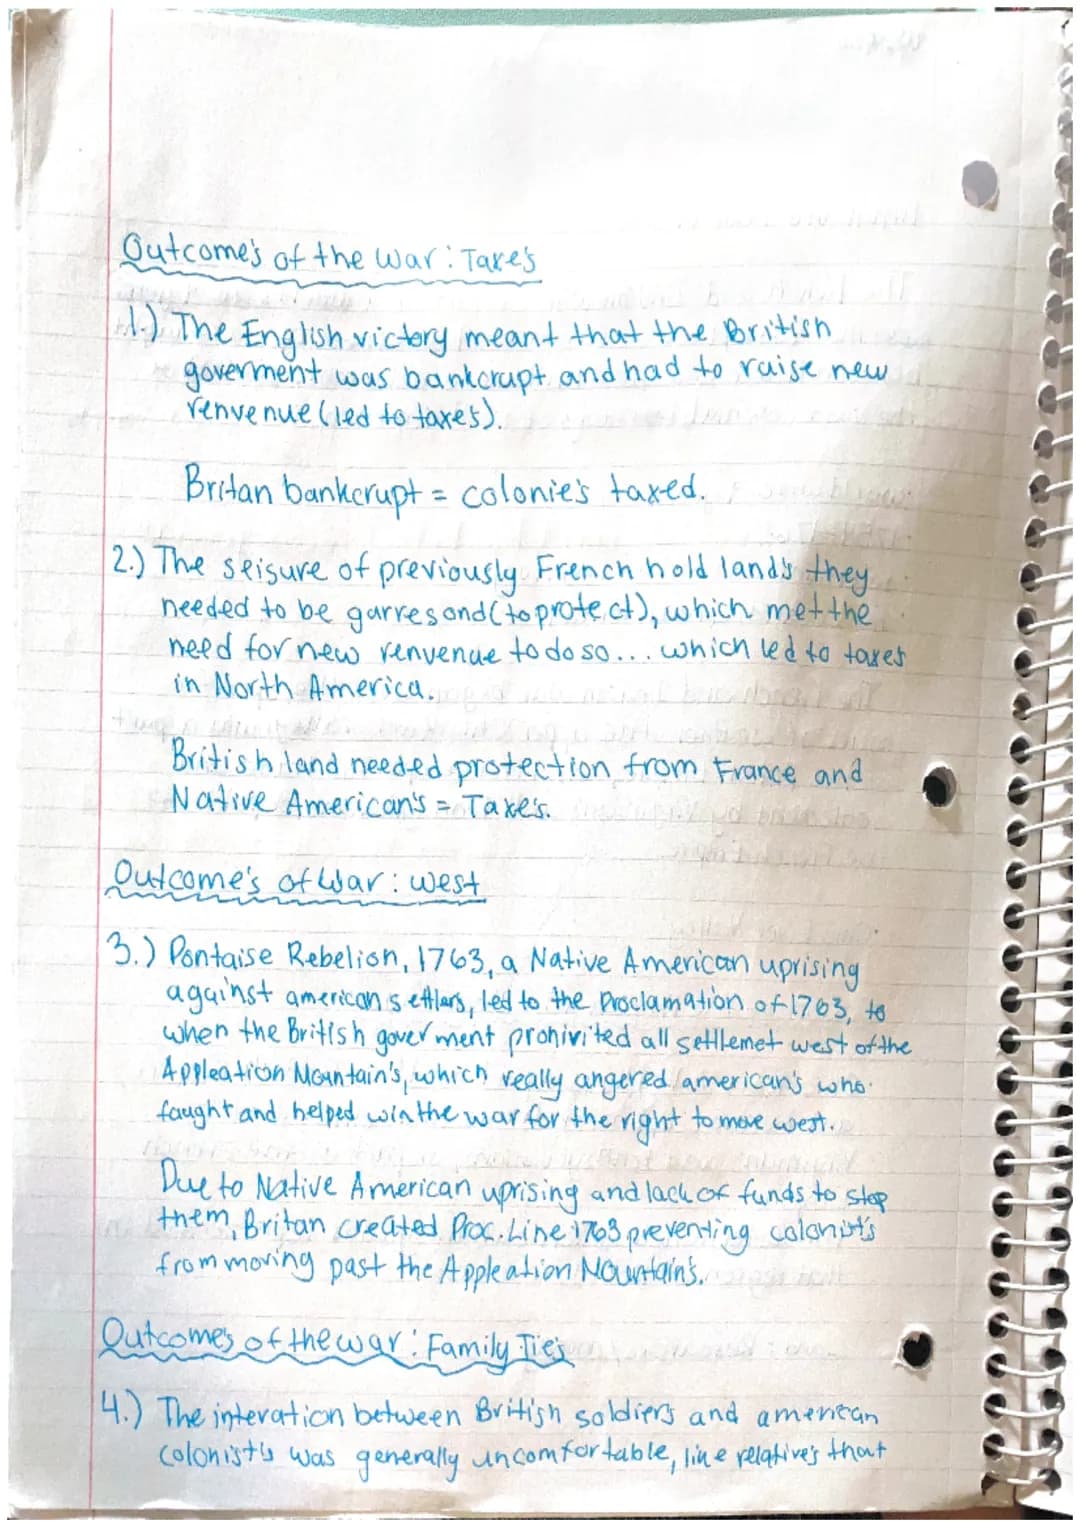 Outcome's of the war: Taxe's
1.) The English victory meant that the British
goverment was bankcrupt and had to raise new
renvenue (led to taxes).
Britan bankcrupt = colonie's taxed.
2.) The seisure of previously French hold land's they
needed to be garresond (to protect), which met the
need for new renvenue to do so... which led to taxes
in North America.
British land needed protection from France and
Native American's = Taxe's.
Outcome's of War: west
3.) Pontaise Rebelion, 1763, a Native American uprising
against american settlars, led to the Proclamation of 1763, to
when the British goverment prohivited all settlemet west of the
Appleation Mountain's, which really angered american's who
faught and helped win the war for the right to move west.
Due to Native American uprising and lack of funds to stop
them, Britan created Proc. Line 1763 preventing colonist's
from moving past the Appleation Mountain's.
Outcome's of the war: Family Tie's
4.) The interation between British soldier's and american
colonist's was generally uncomfortable, line relative's that